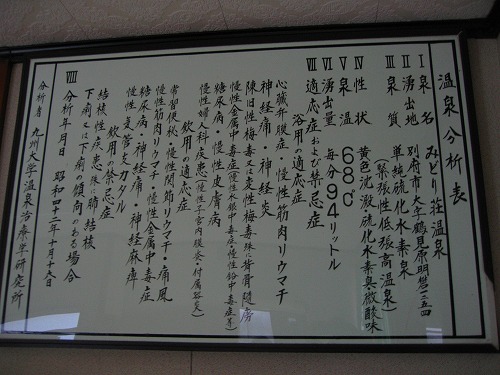 温泉分析表
I 泉名 みどり荘温泉
II 湧出地 別府市大字鶴見原明礬二五四
III 泉質 単純硫化水素泉
(緊張性低張高温泉)
IV 性状 黄色洗澈硫化水素臭微酸味
V 泉温 68°C
VI 湧出量 毎分94リットル
VII 適応症および禁忌症
浴用の適応症
心臓弁膜症・慢性筋肉リウマチ
神経痛・神経炎
陳旧性梅毒又は変性梅毒殊に脊髄癆
慢性金属中毒症(慢性水銀中毒症慢性鉛中毒症等)
糖尿病・慢性皮膚病
慢性婦人科疾患(慢性子宮内膜炎・付属器炎)
飲用の適応症
常習便秘・慢性関節リウマチ・痛風
慢性筋肉リウマチ・慢性金属中毒症
糖尿病・神経痛・神経麻痺
慢性気管支カタル
飲用の禁忌症
結核性疾患殊に肺結核
下痢又は下痢の傾向のある場合
VIII 分析年月日 昭和四十二年十月十六日
分析者 九州大学温泉治療学研究所